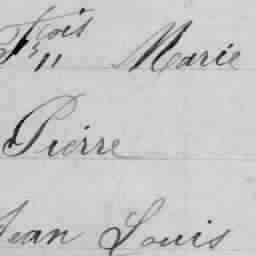 Fçois Marie
Pierre
Jean Louis